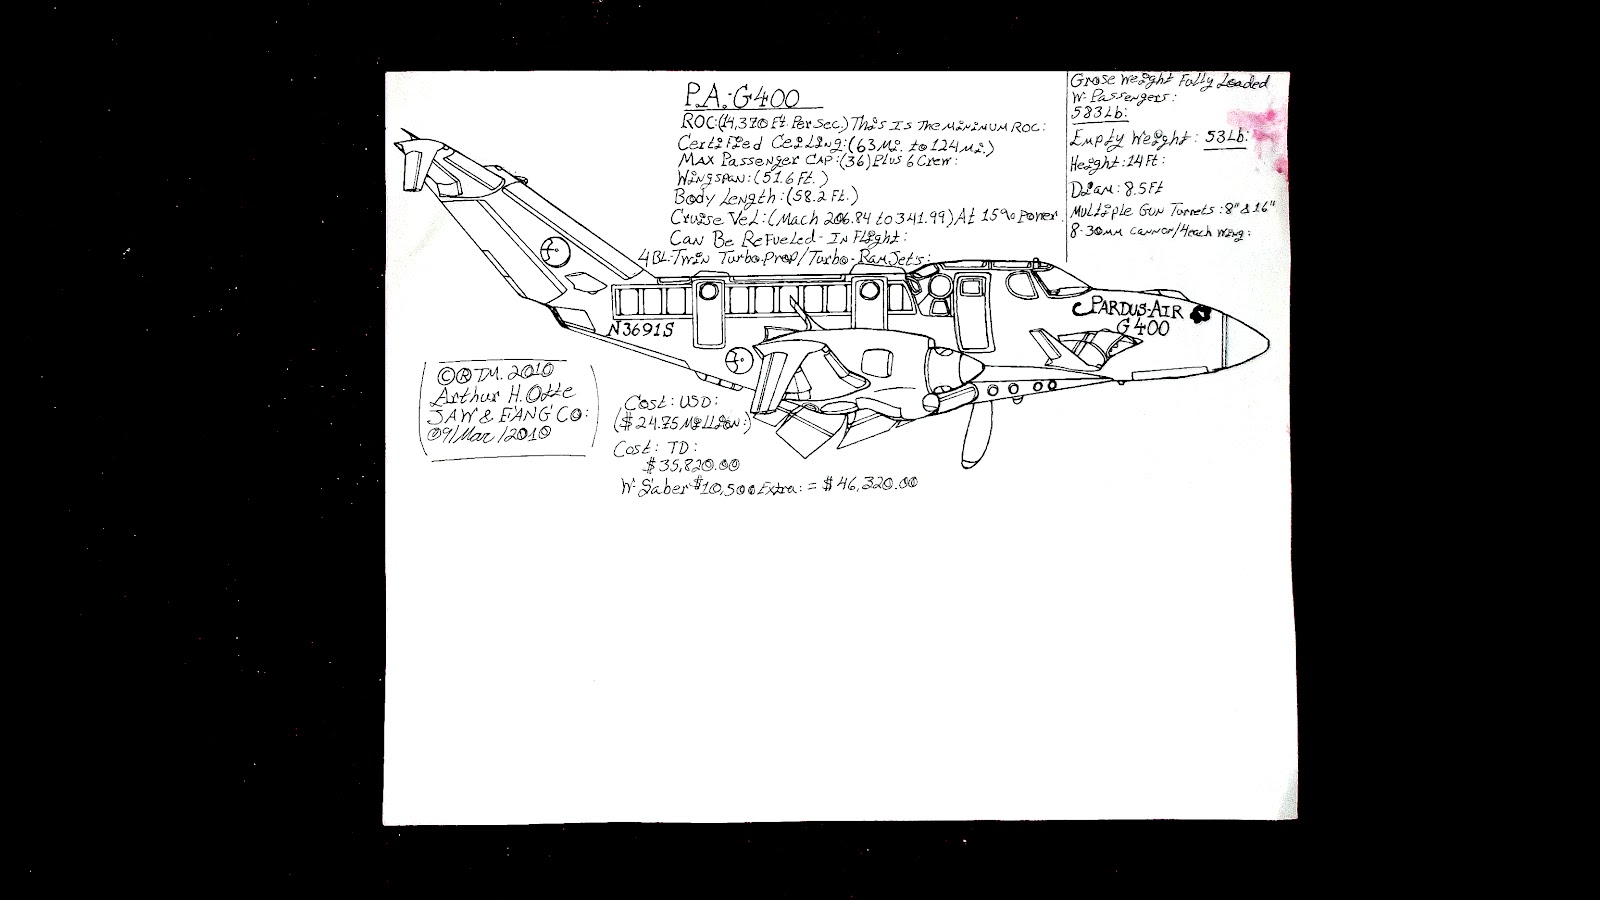 P.A.-G400
ROC:(14,370 Ft. Per Sec.) This Is The Minimum ROC:
Certified Ceiling:(63 Mi. to 124 Mi.)
Max Passenger Cap:(36) Plus 6 Crew:
Wingspan:(51.6 Ft.)
Body Length:(58.2 Ft.)
Cruise Vel:(Mach 206.84 to 341.99) At 15% Power.
Can Be ReFueled-In Flight:
4 BL-Twin Turbo Prop/Turbo-RamJets:
Grose Weight Fully Loaded
W-Passengers:
583Lb:
Empty Weight: 53Lb:
Height:14Ft:
Diam: 8.5Ft
Multiple Gun Turrets: 8" & 16"
8-30mm Cannon/4each Wing:
PARDUS-AIR
G400
N3691S
©®TM. 2010
Arthur H. Otte
JAW & FANG CO:
09/Mar/2010
Cost: USD:
($24.75 Million:)
Cost: TD:
$35,820.00
W-Saber $10,500 Extra: = $46,320.00